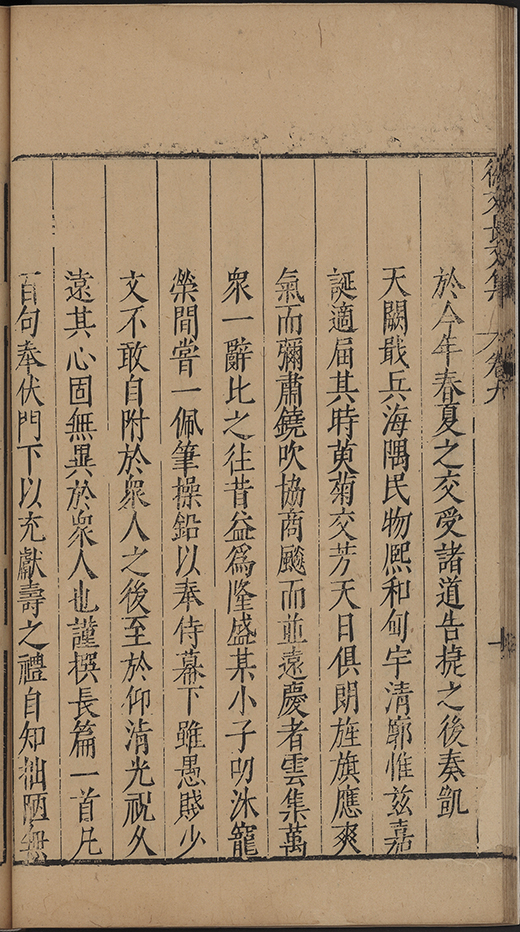 徐文長文集 卷九
於今年春夏之交受諸道告捷之後奏凱
天闕戢兵海隅民物熙和甸宇清廓惟兹嘉
誕適届其時萸菊交芳天日俱朗旌旗應爽
氣而彌肅鐃吹協商飈而並遠慶者雲集萬
衆一辭比之往昔益爲隆盛某小子叨沐寵
榮間嘗一佩筆操鉛以奉侍幕下雖愚賤少
文不敢自附於衆人之後至於仰清光祝久
遠其心固無異於衆人也謹撰長篇一首凡
百句奉伏門下以充獻壽之禮自知拙陋無